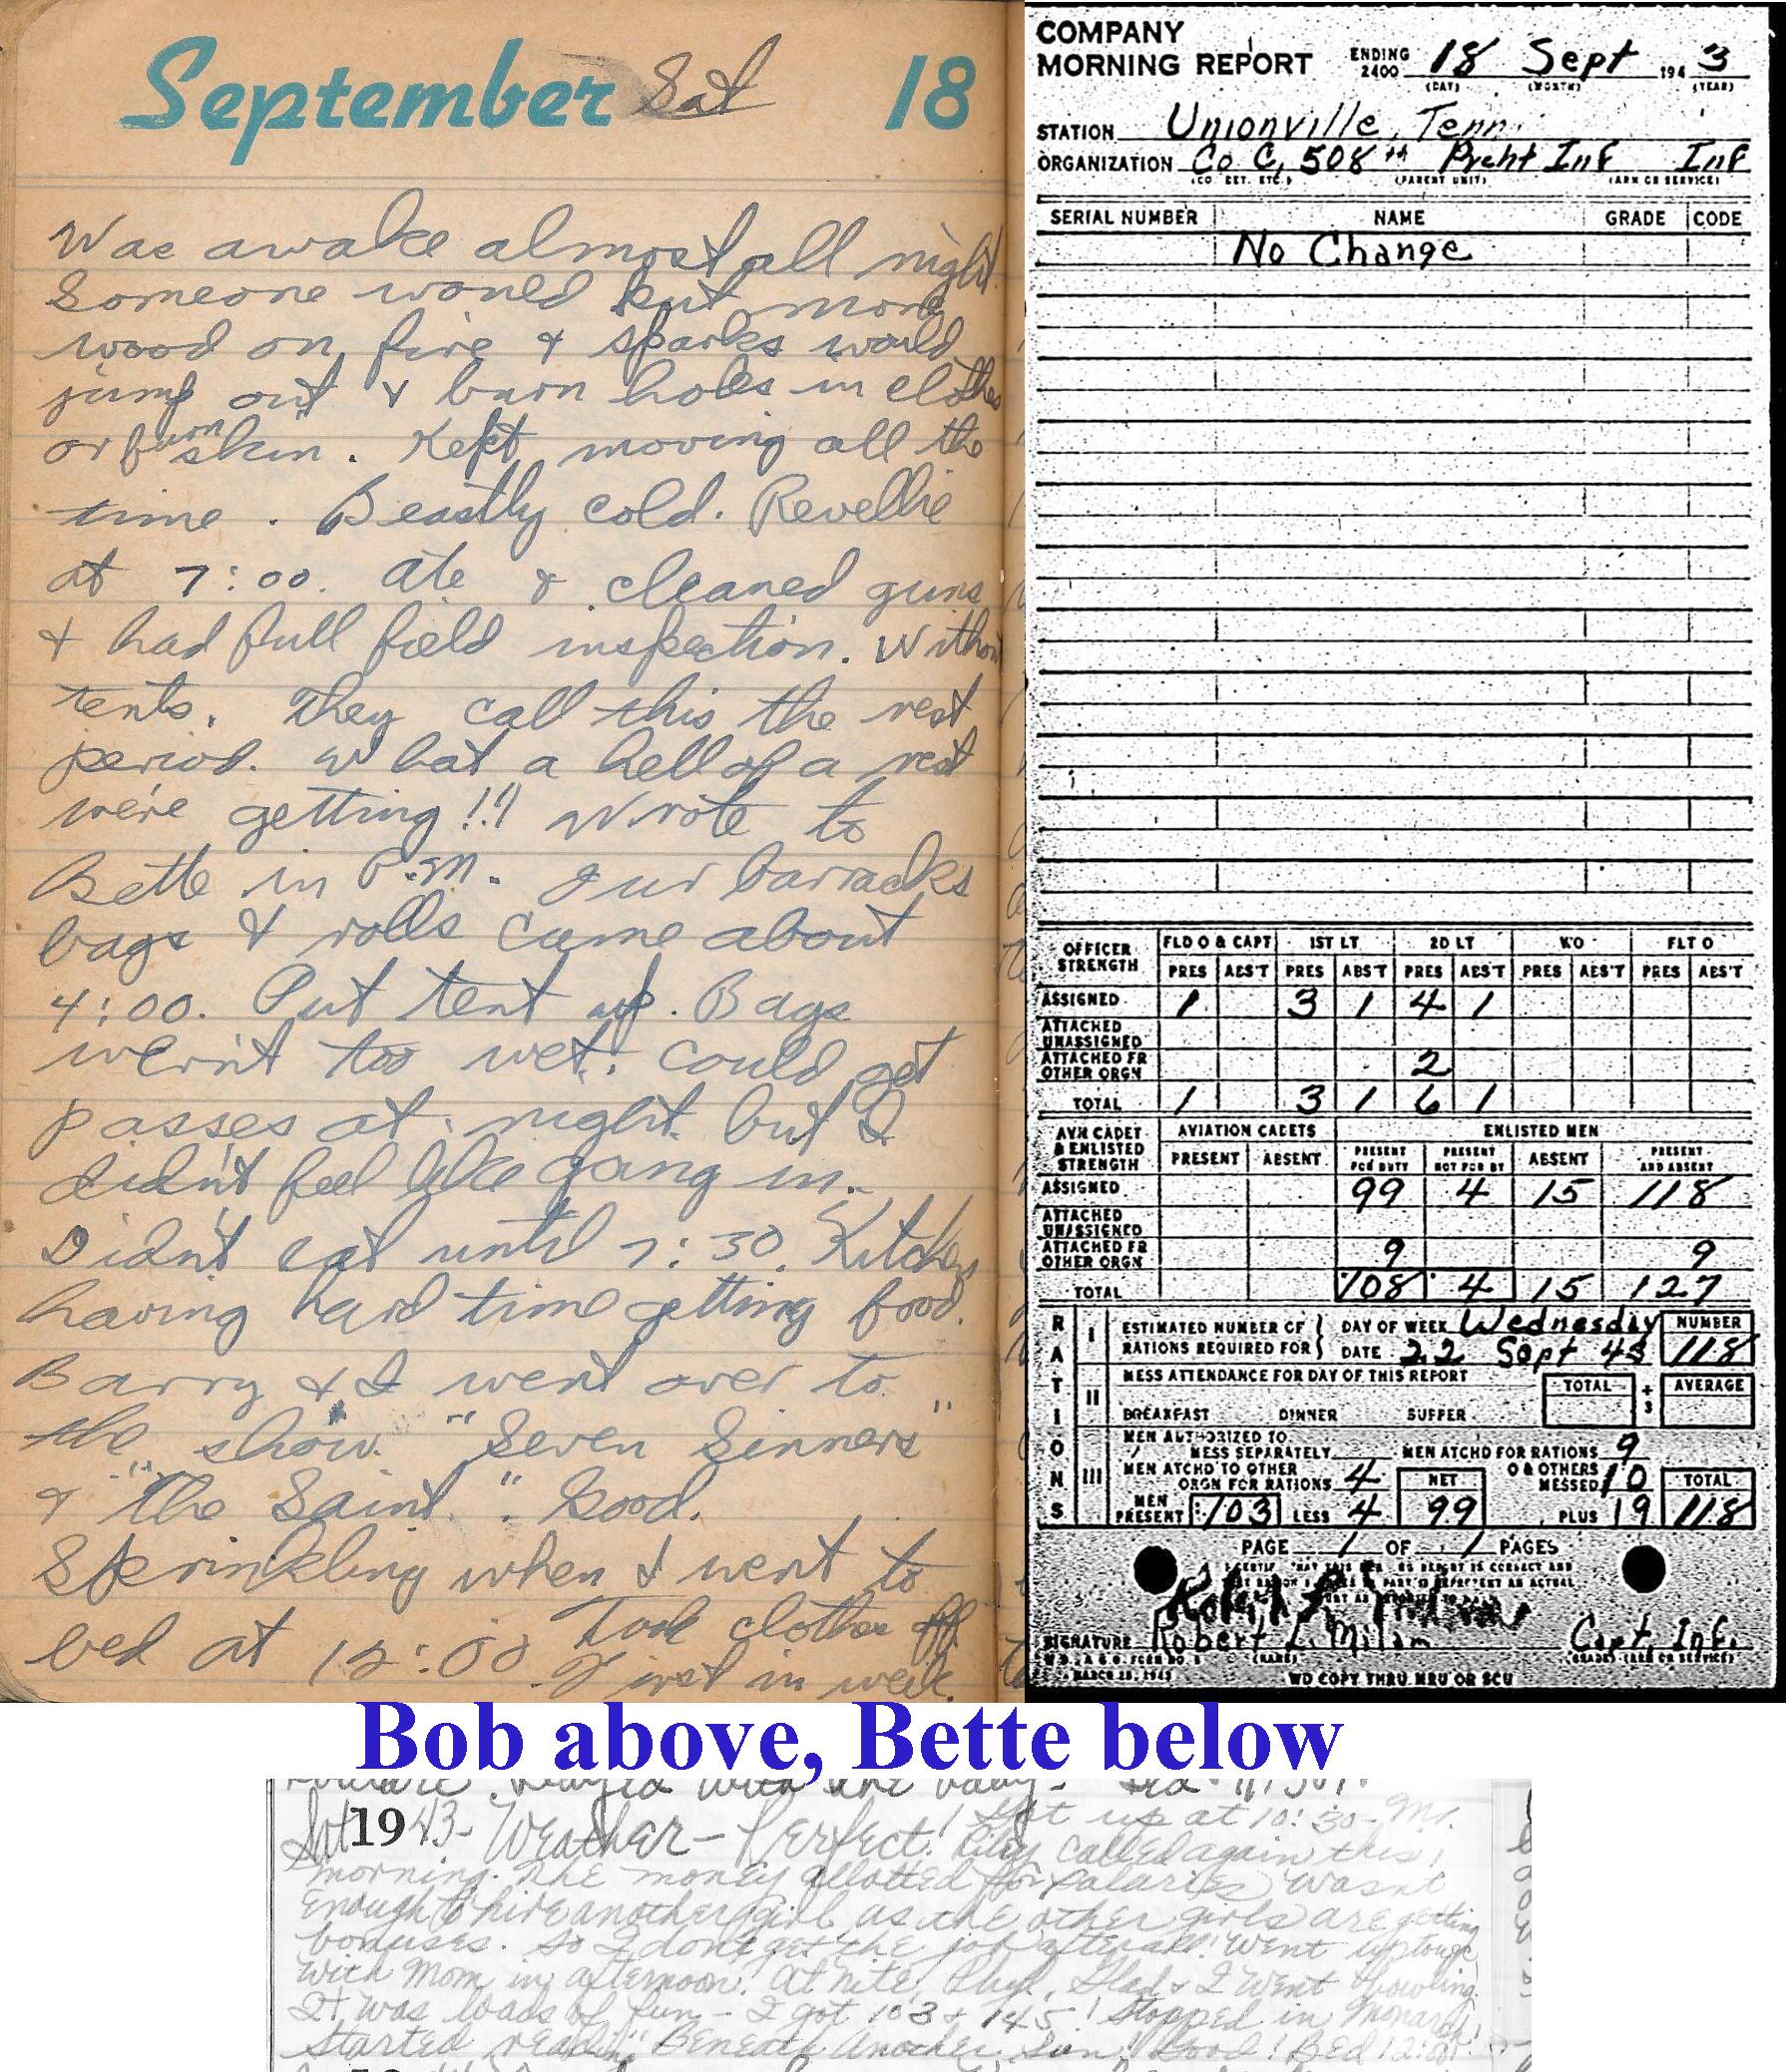 September Sat 18
Was awake almost all night.
Someone would put more
wood on fire & sparks would
jump out & burn holes in clothes
or burn skin. Kept moving all the
time. Beastly cold. Revellie
at 7:00. Ate & cleaned guns
& had full field inspection. Without
tents. They call this the rest
period. What a hell of a rest
we're getting!!! Wrote to
Bette in P.M. Our barracks
bags & rolls came about
4:00. Put tent up. Bags
wern't too wet. Could get
passes at night but I
didn't feel like going in.
Didn't eat until 7:30. Kitchen
having hard time getting food.
Barry & I went over to
the show. "Seven Sinners"
& "The Saint." Good.
Sprinkling when I went to
bed at 12:00 Took clothes off
First in week.
COMPANY
MORNING REPORT ENDING 2400 18 Sept 1943
(DAY) (MONTH) (YEAR)
STATION Unionville, Tenn.
ORGANIZATION Co C, 508th Prcht Inf Inf
(CO DET. ETC.) (PARENT UNIT) (ARM OR SERVICE)
SERIAL NUMBER NAME GRADE CODE
No Change
OFFICER STRENGTH FLD O & CAPT 1ST LT 2D LT WO FLT O
PRES ABS'T PRES ABS'T PRES ABS'T PRES ABS'T PRES ABS'T
ASSIGNED 1 3 1 4 1
ATTACHED UNASSIGNED
ATTACHED FR OTHER ORGN 2
TOTAL 1 3 1 6 1
AVN CADET & ENLISTED STRENGTH AVIATION CADETS ENLISTED MEN
PRESENT ABSENT PRESENT FOR DUTY PRESENT NOT FOR DY ABSENT PRESENT AND ABSENT
ASSIGNED 99 4 15 118
ATTACHED UNASSIGNED
ATTACHED FR OTHER ORGN 9 9
TOTAL 108 4 15 127
RATIONS
I ESTIMATED NUMBER OF RATIONS REQUIRED FOR DAY OF WEEK Wednesday NUMBER
DATE 22 Sept 43 118
II MESS ATTENDANCE FOR DAY OF THIS REPORT TOTAL ÷ 3 AVERAGE
BREAKFAST DINNER SUPPER
III MEN AUTHORIZED TO MESS SEPARATELY MEN ATCHD FOR RATIONS 9
MEN ATCHD TO OTHER ORGN FOR RATIONS 4 NET O & OTHERS MESSED 10 TOTAL
MEN PRESENT 103 LESS 4 99 PLUS 19 118
PAGE 1 OF 1 PAGES
SIGNATURE Robert L. Milam Capt, Inf.
(NAME) (GRADE) (ARM OR SERVICE)
WD COPY THRU MRU OR SCU
Bob above, Bette below
Sat 1943 - Weather - Perfect! Got up at 10:30 - Mr.
Riley called again this
morning. The money allotted for salaries wasnt
enough to hire another girl as the other girls are getting
bonuses. So I dont get the job after all! Went uptown
with Mom in afternoon. At nite, Phyl, Glad & I went bowling.
It was loads of fun - I got 103 & 145! Stopped in Monarch!
Started reading "Beneath Another Sun" Good! Bed 12:00